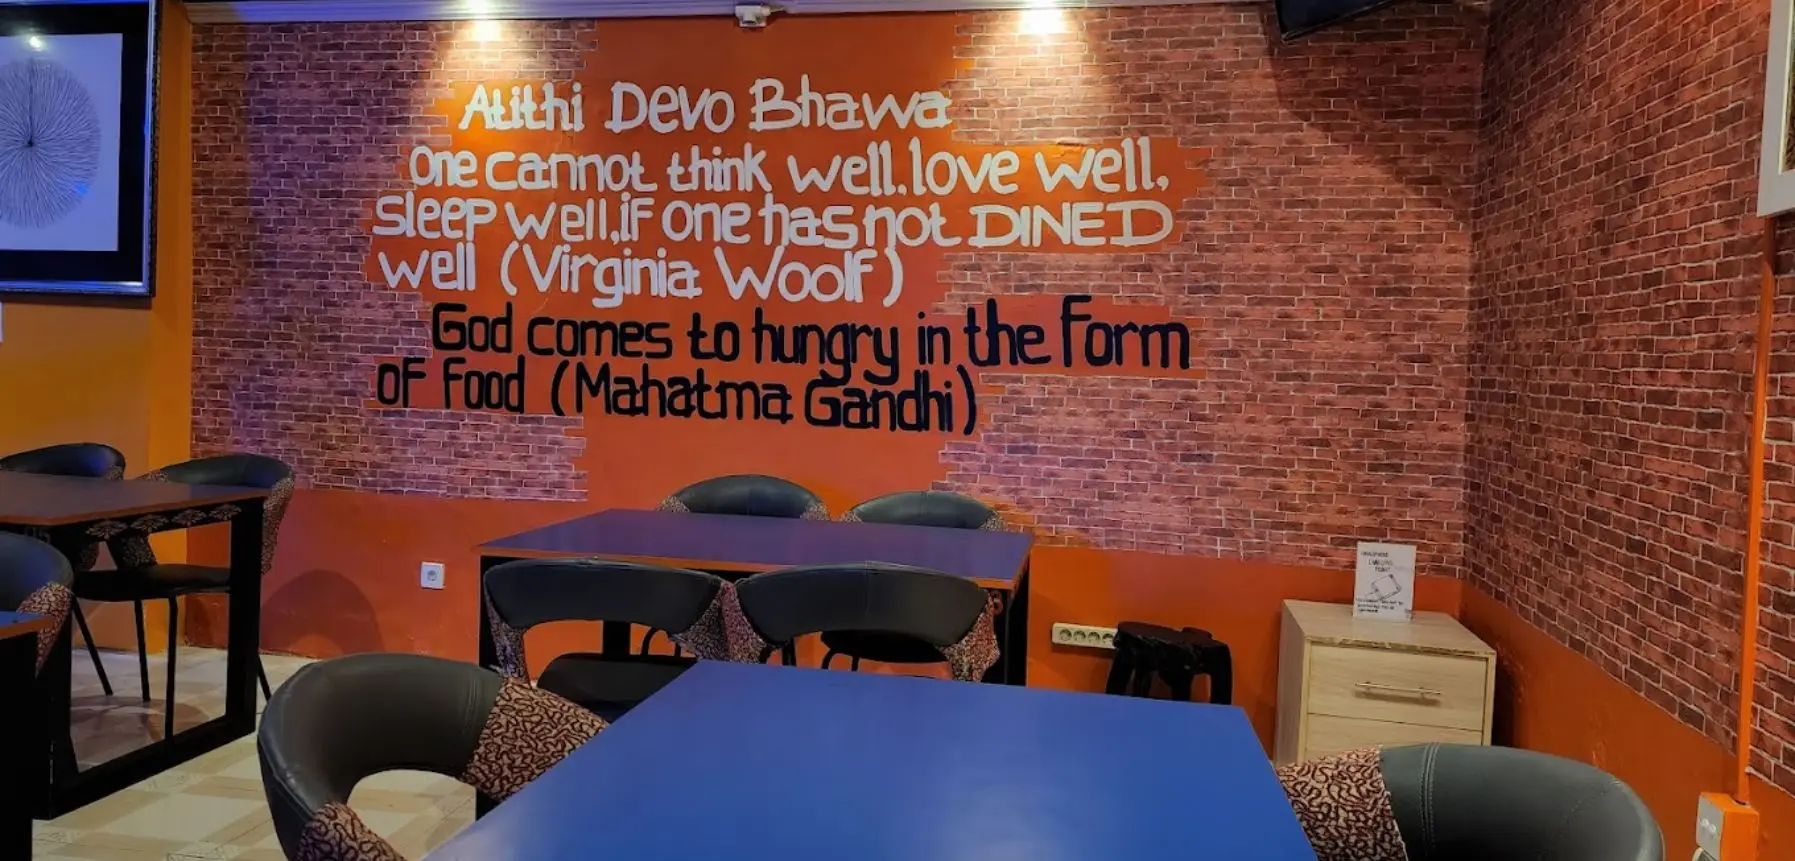 Atithi Devo Bhawa
One cannot think well, love well,
sleep well, if one has not DINED
well (Virginia Woolf)
God comes to hungry in the form
of food (Mahatma Gandhi)